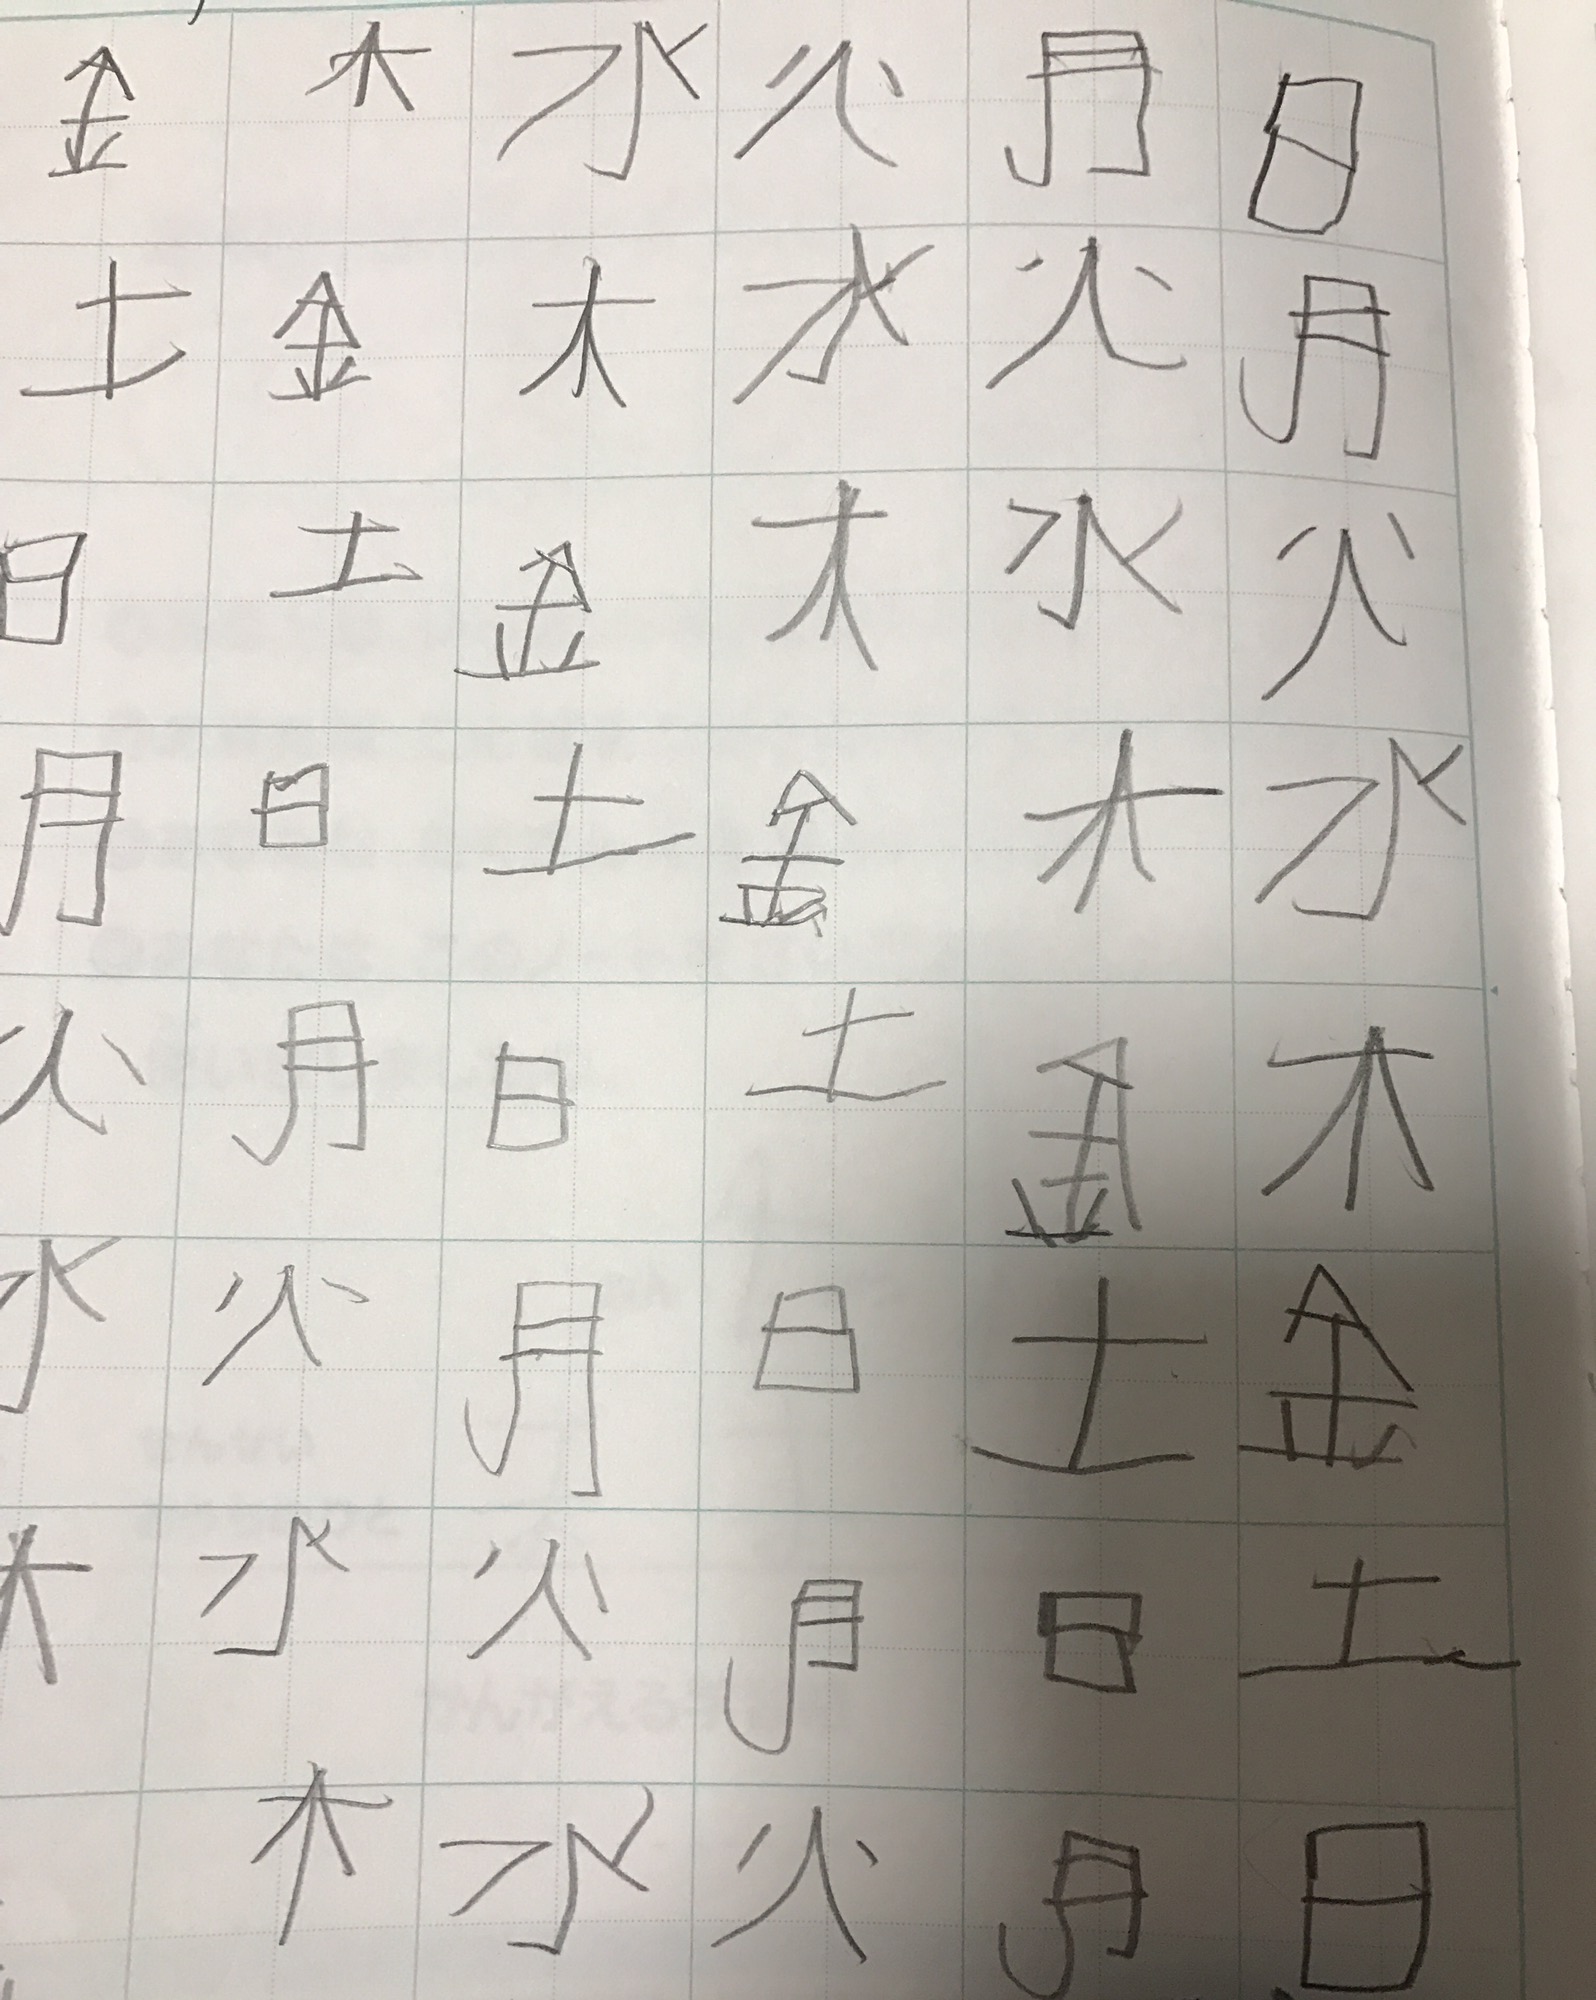 日月火水木金土日
月火水木金土日月
火水木金土日月火
水木金土日月火水
木金土日月火水木
金土日月火水木